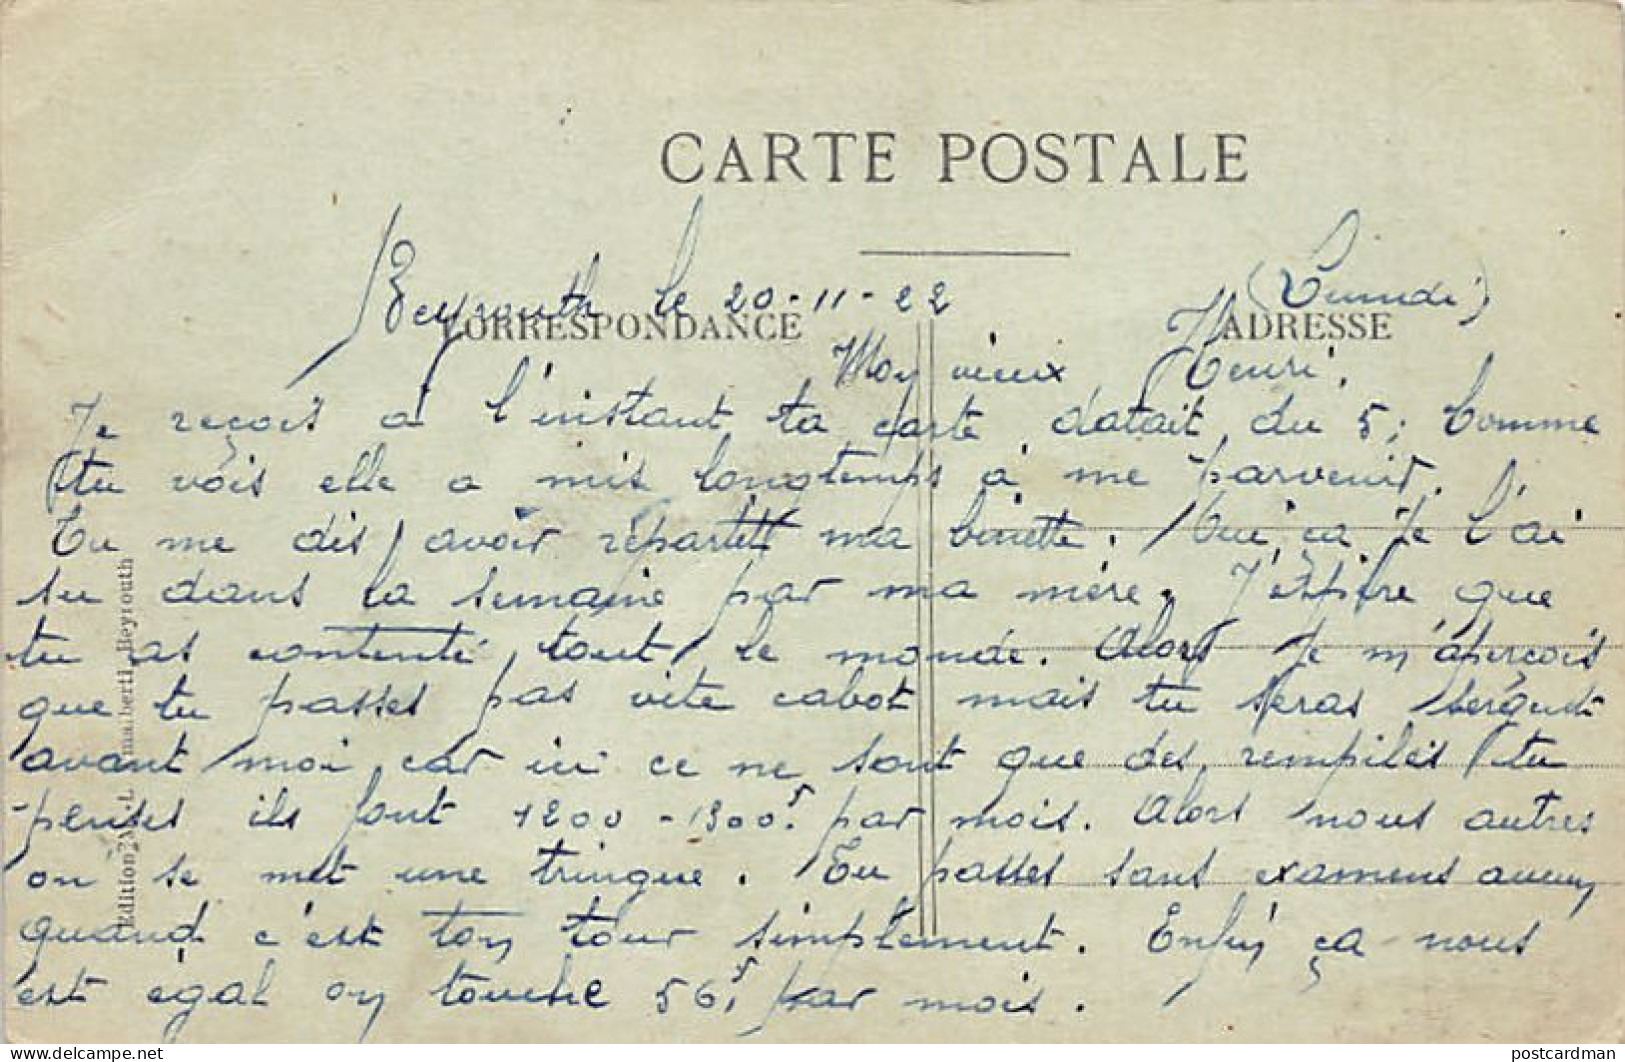 CARTE POSTALE
Beyrouth le 20-11-22 (Lundi)
CORRESPONDANCE ADRESSE
Mon vieux Henri.
Je reçois à l'instant ta carte datait du 5; Comme
tu vois elle a mis longtemps à me parvenir.
Tu me dis avoir répartit ma binette. Oui ça je l'ai
su dans la semaine par ma mère. J'espère que
tu as contenté tout le monde. Alors je m'aperçois
que tu passes pas vite cabot mais tu seras sergent
avant moi car ici ce ne sont que des rempilés tu
penses ils font 1200 - 1300f. par mois. Alors nous autres
on se met une tringue. Tu passes sans examens aucun
quand c'est ton tour simplement. Enfin ça nous
est égal on touche 56f, par mois.
Édition Beyrouth
postcardman